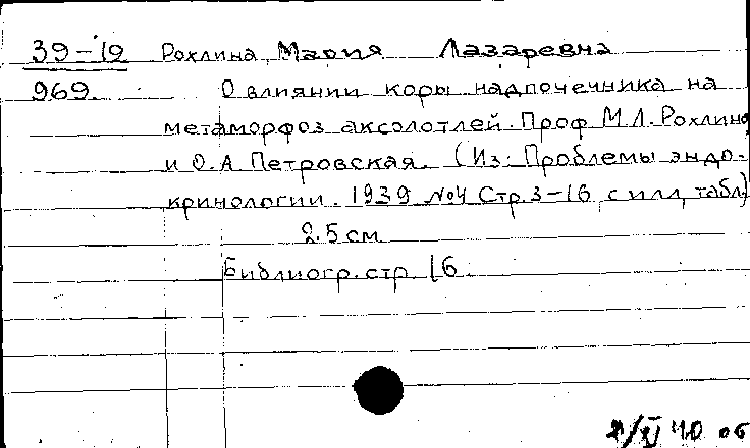 39-19 Рохлина, Мария Лазаревна
969. О влиянии коры надпочечника на
метаморфоз аксолотлей. Проф. М.Л. Рохлина
и О.А. Петровская. (Из: Проблемы эндо-
кринологии. 1939 №4 Стр. 3-16 с илл, табл)
25 см
Библиогр. стр. 16.
40 об